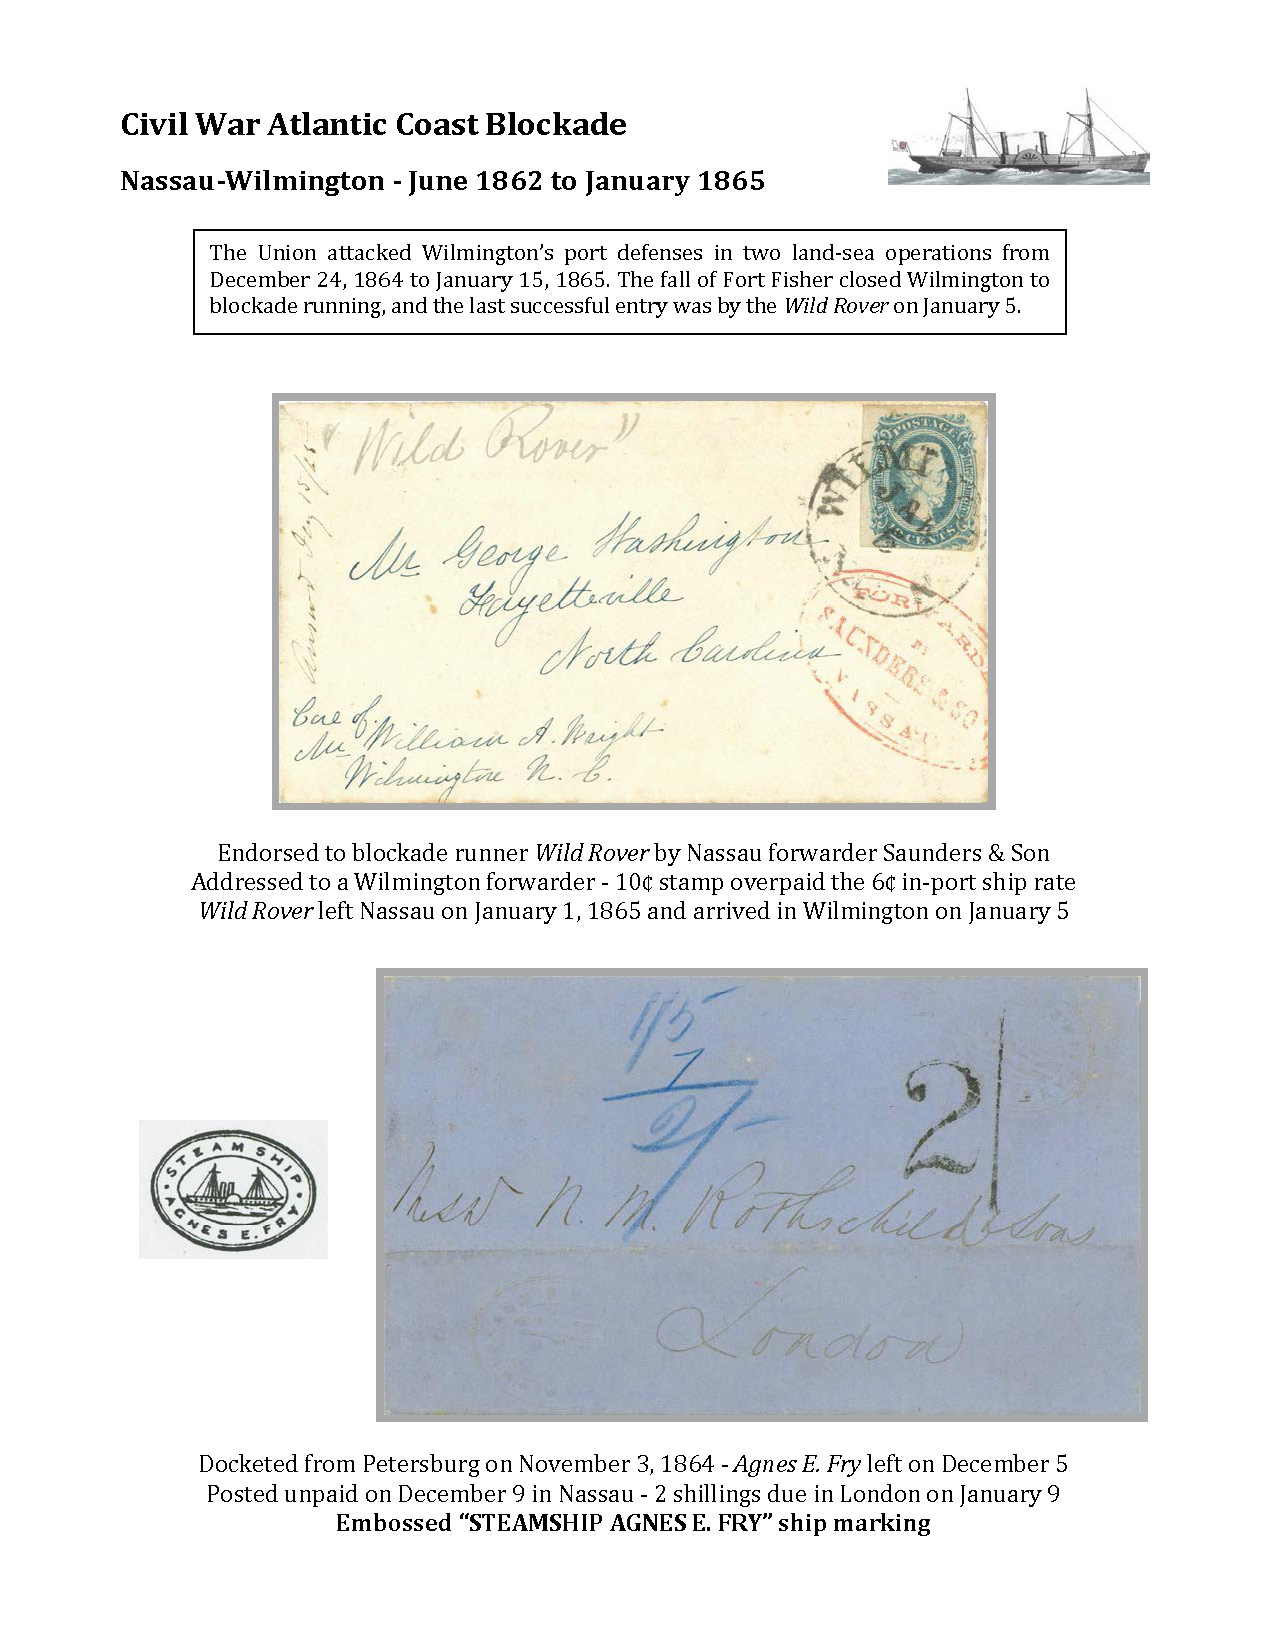 Civil War Atlantic Coast Blockade
Nassau-Wilmington - June 1862 to January 1865
The Union attacked Wilmington’s port defenses in two land-sea operations from
December 24, 1864 to January 15, 1865. The fall of Fort Fisher closed Wilmington to
blockade running, and the last successful entry was by the Wild Rover on January 5.
"Wild Rover"
POSTAGE
CENTS
WILMI
JAN
5
Mr George Washington
Fayetteville
North Carolina
FORWARDE
BY
SAUNDERS & SO
NASSAU
Care of.
Mr William A. Wright
Wilmington N. C.
Endorsed to blockade runner Wild Rover by Nassau forwarder Saunders & Son
Addressed to a Wilmington forwarder - 10¢ stamp overpaid the 6¢ in-port ship rate
Wild Rover left Nassau on January 1, 1865 and arrived in Wilmington on January 5
1/5
7
2/-
2/
N. M. Rothschild & Sons
London
STEAM SHIP
AGNES E. FRY
Docketed from Petersburg on November 3, 1864 - Agnes E. Fry left on December 5
Posted unpaid on December 9 in Nassau - 2 shillings due in London on January 9
Embossed “STEAMSHIP AGNES E. FRY” ship marking